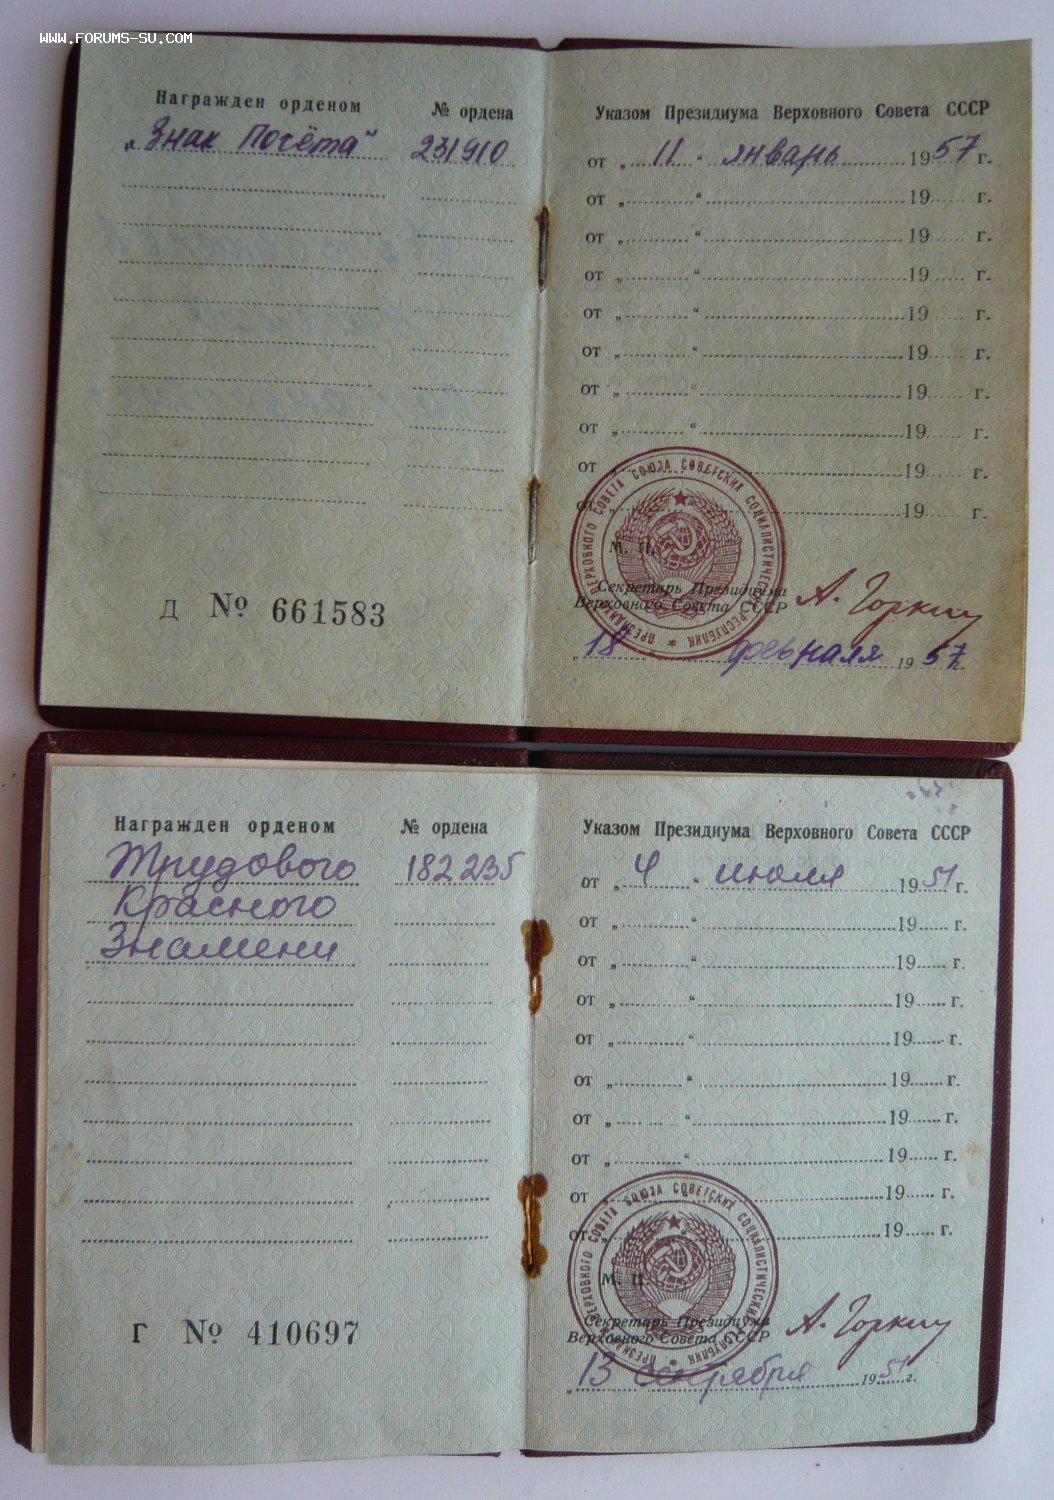 WWW.FORUMS-SU.COM
Награжден орденом № ордена Указом Президиума Верховного Совета СССР
„Знак Почёта“ 231910 от „ 11 “ январь 1957 г.
от „ “ 19 г.
от „ “ 19 г.
от „ “ 19 г.
от „ “ 19 г.
от „ “ 19 г.
от „ “ 19 г.
от „ “ 19 г.
от „ 19 г.
от „ 19 г.
ПРЕЗИДИУМ ВЕРХОВНОГО СОВЕТА СОЮЗА СОВЕТСКИХ СОЦИАЛИСТИЧЕСКИХ РЕСПУБЛИК
М. П.
Д № 661583
Секретарь Президиума
Верховного Совета СССР А. Горкин
„ 18 “ февраля 1957 г.
Награжден орденом № ордена Указом Президиума Верховного Совета СССР
Трудового 182235 от „ 4 “ июля 1951 г.
Красного от „ “ 19 г.
Знамени от „ “ 19 г.
от „ “ 19 г.
от „ “ 19 г.
от „ “ 19 г.
от „ “ 19 г.
от „ “ 19 г.
от „ 19 г.
от „ 19 г.
ПРЕЗИДИУМ ВЕРХОВНОГО СОВЕТА СОЮЗА СОВЕТСКИХ СОЦИАЛИСТИЧЕСКИХ РЕСПУБЛИК
М. П.
Г № 410697
Секретарь Президиума
Верховного Совета СССР А. Горкин
„ 13 сентября 1951 г.